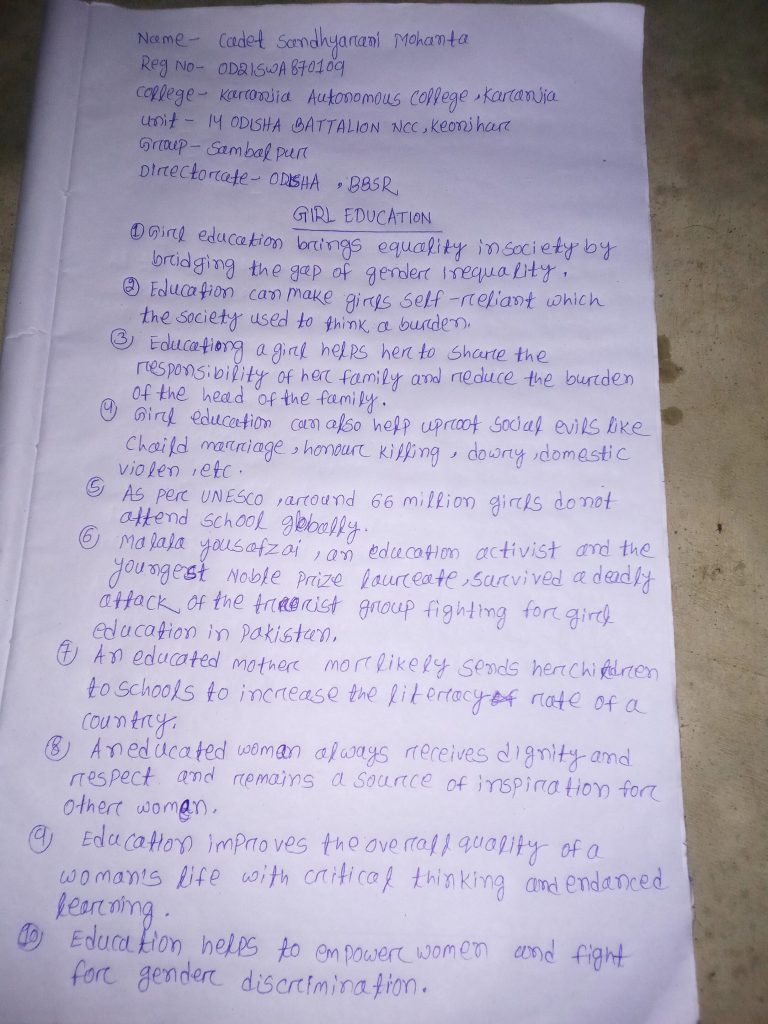 Name - Cadet Sandhyarani Mohanta
Reg No - OD21SWA870109
College - Karanjia Autonomous College, Karanjia
Unit - 14 ODISHA BATTALION NCC, Keonjhar
Group - Sambalpur
Directorate - ODISHA, BBSR
GIRL EDUCATION
① Girl education brings equality in society by
bridging the gap of gender inequality.
② Education can make girls self-reliant which
the society used to think a burden.
③ Educationg a girl helps her to share the
responsibility of her family and reduce the burden
of the head of the family.
④ Girl education can also help uproot social evils like
Chaild marriage, honour killing, dowry, domestic
violen, etc.
⑤ As per UNESCO, around 66 million girls do not
attend school globally.
⑥ Malala yousafzai, an education activist and the
youngest Noble Prize laureate, survived a deadly
attack of the terrorist group fighting for girl
education in Pakistan.
⑦ An educated mother more likely sends her children
to schools to increase the literacy rate of a
country.
⑧ An educated woman always receives dignity and
respect and remains a source of inspiration for
other woman.
⑨ Education improves the overall quality of a
woman's life with critical thinking and endanced
learning.
⑩ Education helps to empower women and fight
for gender discrimination.